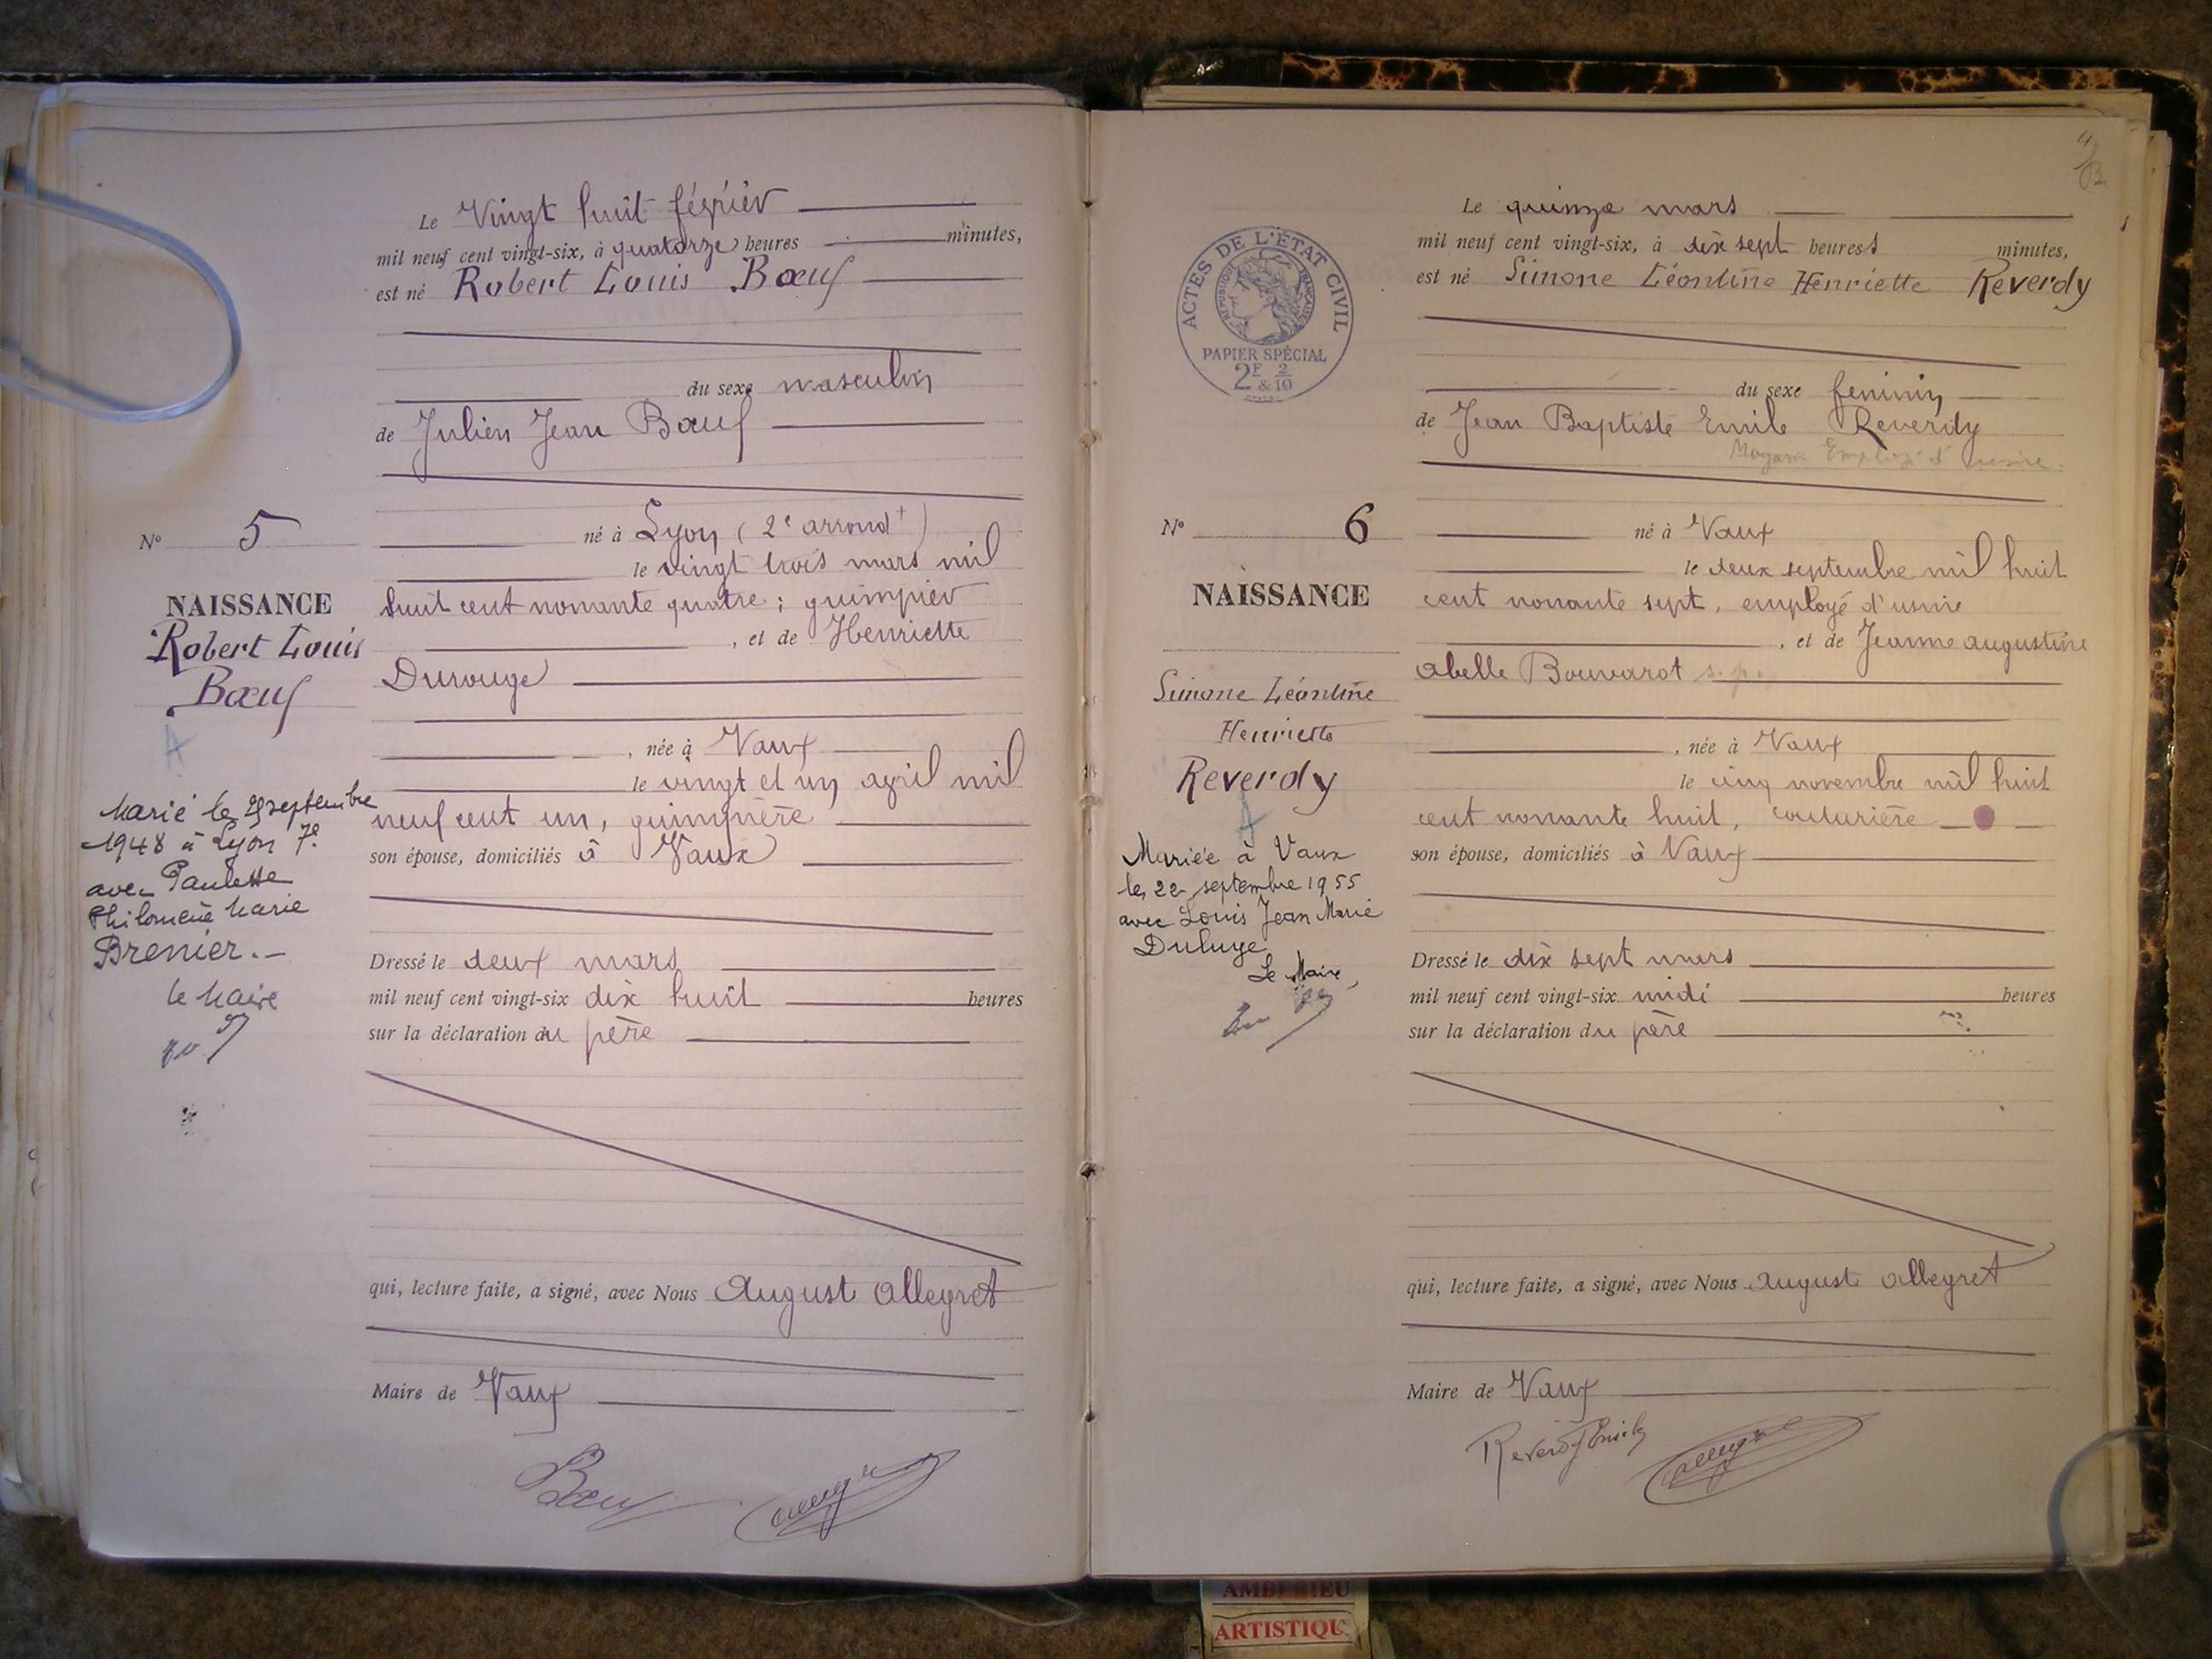 Le Vingt huit février
mil neuf cent vingt-six, à quatorze heures minutes,
est né Robert Louis Bœuf
du sexe masculin
de Julien Jean Bœuf
né à Lyon (2e arrondt)
le vingt trois mars mil
huit cent nonante quatre ; guimpier
, et de Henriette
Durouge
, née à Vaux
le vingt et un avril mil
neuf cent un, guimpière
son épouse, domiciliés à Vaux
Dressé le deux mars
mil neuf cent vingt-six dix huit heures
sur la déclaration du père
qui, lecture faite, a signé, avec Nous August Allegret
Maire de Vaux
Bœuf
No 5
NAISSANCE
Robert Louis
Bœuf
A
Marié le septembre
1948 à Lyon 7e
avec Paulette
Philomène Marie
Brenier.-
le Maire
4
Le quinze mars
mil neuf cent vingt-six, à dix sept heures minutes,
est né Simone Léontine Henriette Reverdy
du sexe feminin
de Jean Baptiste Emile Reverdy
Employé d'usine
né à Vaux
le deux septembre mil huit
cent nonante sept, employé d'usine
, et de Jeanne augustine
abelle Bouvarot s.p.
, née à Vaux
le cinq novembre mil huit
cent nonante huit, couturière
son épouse, domiciliés à Vaux
Dressé le dix sept mars
mil neuf cent vingt-six midi heures
sur la déclaration du père
qui, lecture faite, a signé, avec Nous Auguste Allegret
Maire de Vaux
Reverdy Emile
ACTES DE L'ÉTAT CIVIL
RÉPUBLIQUE FRANÇAISE
PAPIER SPÉCIAL
2F 2/10
&
No 6
NAISSANCE
Simone Léontine
Henriette
Reverdy
A
Mariée à Vaux
le 22 septembre 1955
avec Louis Jean Marie
Duluye
Le Maire,
AMBERIEU
ARTISTIQU